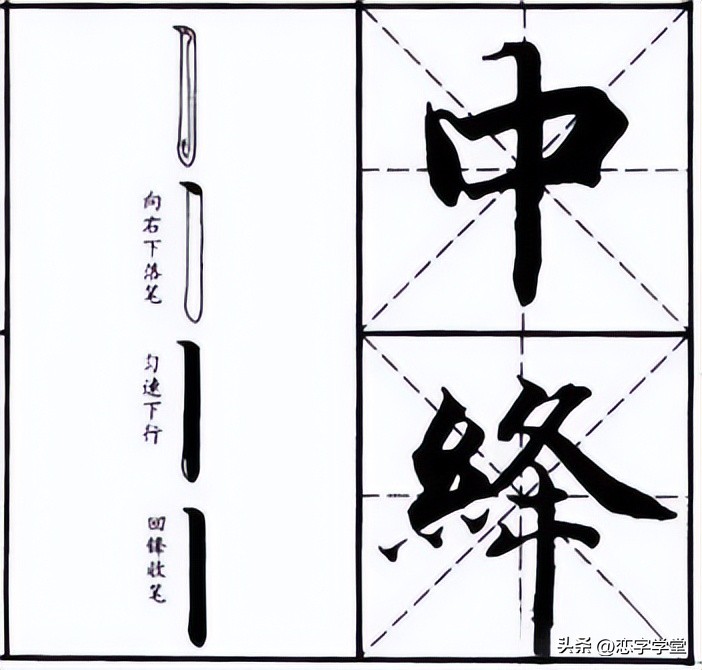 向右下落笔
匀速下行
回锋收笔
中
絳
头条 @恋字学堂